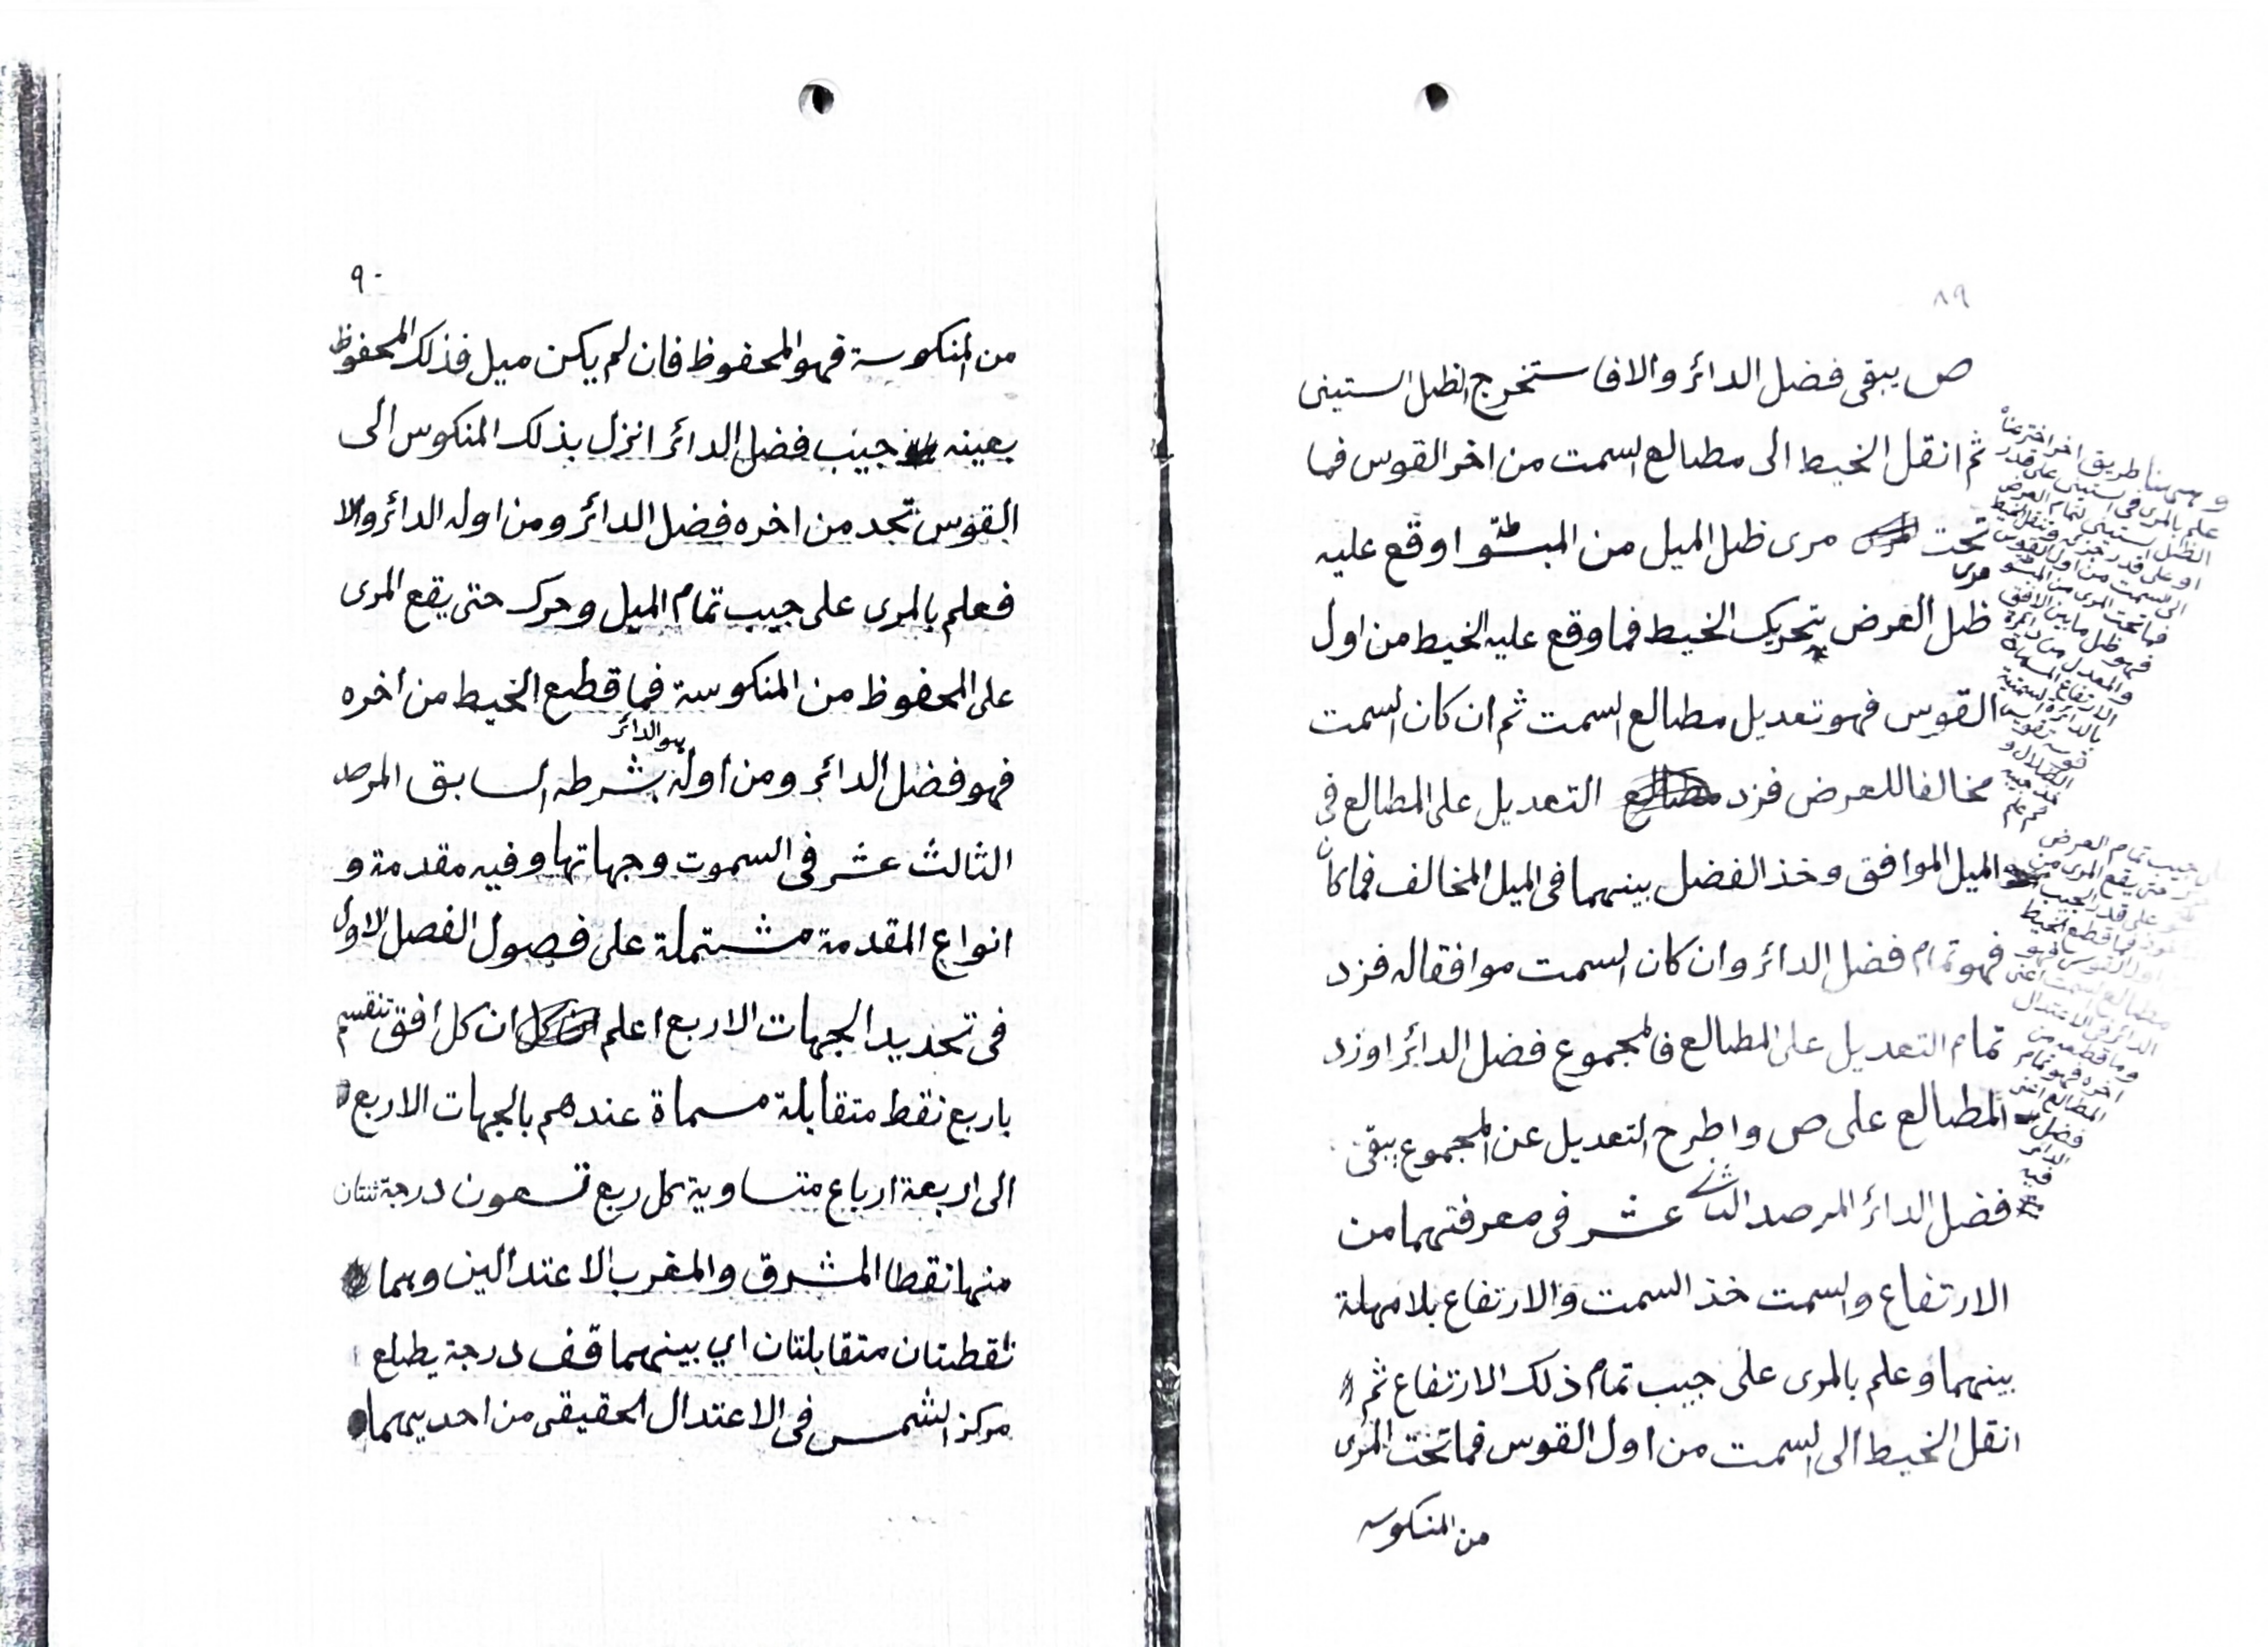 ٨٩
ص يبقى فضل الدائر والا فاستخرج الظل الستينى
ثم انقل الخيط الى مطالع السمت من اخر القوس فما
تحت مرى ظل الميل من المبسوطة او قع عليه
مرى
ظل العرض بتحريك الخيط فما وقع عليه الخيط من اول
القوس فهو تعديل مطالع السمت ثم ان كان السمت
مخالفا للعرض فزد التعديل على المطالع فى
الميل الموافق وخذ الفضل بينهما فى الميل المخالف فما كان
فهو تمام فضل الدائر وان كان السمت موافقا له فزد
تمام التعديل على المطالع فالمجموع فضل الدائر او زد
المطالع على ص واطرح التعديل عن المجموع يبقى
فضل الدائر المرصد الثانى عشر فى معرفتهما من
الارتفاع والسمت خذ السمت والارتفاع بلا مهلة
بينهما وعلم بالمرى على جيب تمام ذلك الارتفاع ثم
انقل الخيط الى السمت من اول القوس فما تحت المرى
من المنكوسه
وهنا طريق اخر اخترعناه
علم بالمرى فى الستينى على قدر
الظل الستينى لتمام العرض
او على قدر جزئه وتنقل الخيط
الى السمت من اول القوس
فما تحت المرى من المبسوطة
فهو ظل ما بين الافق
والمعدل من دائرة
الارتفاع المسماة
بالدائرة السمتية
قوسه تقويس
الظلال و
خذ جيبه
ثم علم
على جيب تمام العرض
حتى يقع المرى من
على قدر الجيب
فما قطع الخيط
من اول القوس فهو
مطالع السمت اعنى
الدائر فى الاعتدال
وما قطعه من
اخره فهو تمام
المطالع اعنى
فضل
الدائر
فيه
٩٠
من المنكوسة فهو المحفوظ فان لم يكن ميل فذلك المحفوظ
بعينه جيب فضل الدائر انزل بذلك المنكوس الى
القوس تجد من اخره فضل الدائر ومن اوله الدائر والا
فعلم بالمرى على جيب تمام الميل وحرك حتى يقع المرى
على المحفوظ من المنكوسة فما قطع الخيط من اخره
هو الدائر
فهو فضل الدائر ومن اوله بشرطه السابق المرصد
الثالث عشر فى السموت وجهاتها وفيه مقدمة و
انواع المقدمة مشتملة على فصول الفصل الاول
فى تحديد الجهات الاربع اعلم ان كل افق تنقسم
باربع نقط متقابلة مسماة عندهم بالجهات الاربع
الى اربعة ارباع متساوية كل ربع تسعون درجة ثنتان
منها نقطا المشرق والمغرب الاعتدالين وهما
نقطتان متقابلتان اي بينهما قف درجة يطلع
مركز الشمس فى الاعتدال الحقيقى من احديهما